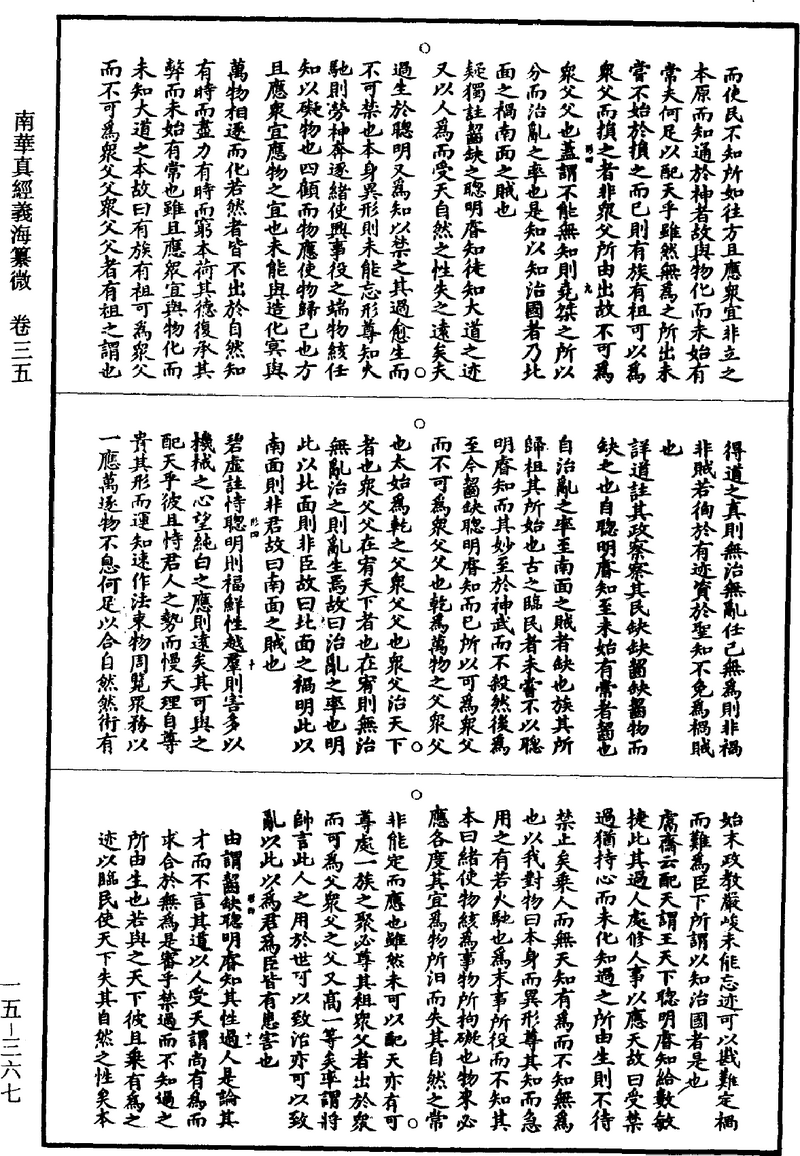 南華真經義海纂微　卷三五
而使民不知所如往方且應衆宜非立之
本原而知通於神者故與物化而未始有
常夫何足以配天乎雖然無為之所出未
嘗不始於損之而已則有族有祖可以為
衆父而損之者非衆父所由出故不可為
衆父父也蓋謂不能無知則堯桀之所以
分而治亂之率也是知以知治國者乃北
面之禍南面之賊也
疑獨註齧缺之聰明睿知徒知大道之迹
又以人為而受天自然之性失之遠矣夫
過生於聰明又為知以禁之其過愈生而
不可禁也本身異形則未能忘形尊知火
馳則勞神奔逐緒使興事役之端物絯任
知以礙物也四顧而物應使物歸己也方
且應衆宜應物之宜也未能與造化冥與
萬物相逐而化若然者皆不出於自然知
有時而盡力有時而窮本荷其德復承其
弊而未始有常也雖且應衆宜與物化而
未知大道之本故曰有族有祖可為衆父
而不可為衆父父衆父父者有祖之謂也
得道之真則無治無亂任己無為則非禍
非賊若徇於有迹資於聖知不免為禍賊
也
詳道註其政察察其民缺缺齧缺齧物而
缺之也自聰明睿知至未始有常者齧也
自治亂之率至南面之賊者缺也族其所
歸祖其所始也古之臨民者未嘗不以聰
明睿知而其妙至於神武而不殺然後為
至今齧缺聰明睿知而已所以可為衆父
而不可為衆父父也乾為萬物之父衆父
也太始為乾之父衆父父也衆父治天下
者也衆父父在宥天下者也在宥則無治
無亂治之則亂生焉故曰治亂之率也明
此以北面則非臣故曰北面之禍明此以
南面則非君故曰南面之賊也
碧虛註恃聰明則福鮮性越羣則害多以
機械之心望純白之應則遠矣其可與之
配天乎彼且恃君人之勢而慢天理自尊
貴其形而運知速作法束物周覽衆務以
一應萬逐物不息何足以合自然然術有
始末政教嚴峻未能忘迹可以戡難定禍
而難為臣下所謂以知治國者是也
鬳齋云配天謂王天下聰明睿知給數敏
捷此其過人處修人事以應天故曰受禁
過猶持心而未化知過之所由生則不待
禁止矣乘人而無天知有為而不知無為
也以我對物曰本身而異形尊其知而急
用之有若火馳也為末事所役而不知其
本曰緒使物絯為事物所拘礙也物來必
應各度其宜為物所汩而失其自然之常
非能定而應也雖然未可以配天亦有可
尊處一族之聚必尊其祖衆父者出於衆
而可為父衆父之父又高一等矣率謂將
帥言此人之用於世可以致治亦可以致
亂以此以為君為臣皆有患害也
由謂齧缺聰明睿知其性過人是論其
才而不言其道以人受天謂尚有為而
求合於無為是審乎禁過而不知過之
所由生也若與之天下彼且乘有為之
迹以臨民使天下失其自然之性矣本
一五—三六七